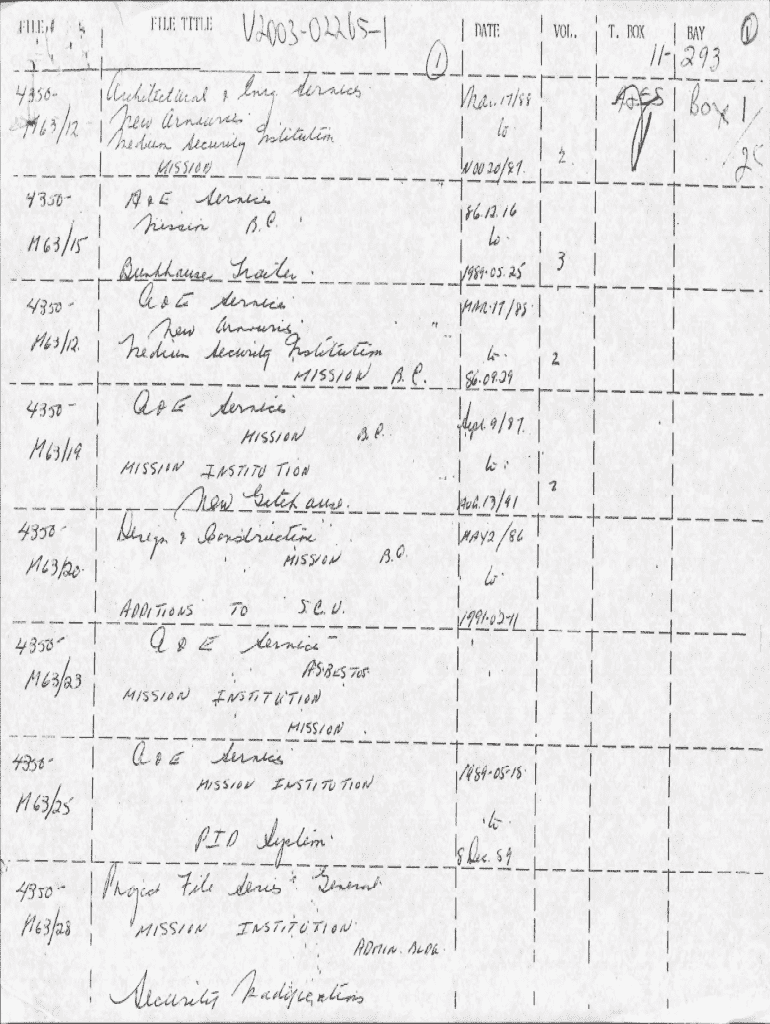 FILE# FILE TITLE V2003-02265-1 DATE VOL. T. BOX BAY 1
1 11- 293
4350- Architectural & Eng Services Mar. 17/88 Box 1/
M63/12 New Armouries to
Medium Security Institution 2
MISSION NOV 20/87.
4350- A & E Services 86.12.16
Mission B.C. to
M63/15 3
Bunkhouse Trailer. 1989.05.25
4350- A & E Services MAR.17/88
New Armouries
M63/12. Medium Security Institution to 2
MISSION B.C. 86.09.29
4350- A & E Services Sept. 9/87.
MISSION B.C.
M63/19 MISSION INSTITUTION to 2
New Gatehouse. AUG.13/91
4350- Design & Construction MAY 2/86
MISSION B.C.
M63/20 to
ADDITIONS TO S.C.U. 1991-02-11
4350- A & E Services
ASBESTOS
M63/23 MISSION INSTITUTION
MISSION.
4350- A & E Services 1989-05-18
MISSION INSTITUTION
M63/25 to
PID System. 8 Dec. 89
4350- Project File Series General
M63/28 MISSION INSTITUTION
ADMIN. BLDG.
Security Modifications